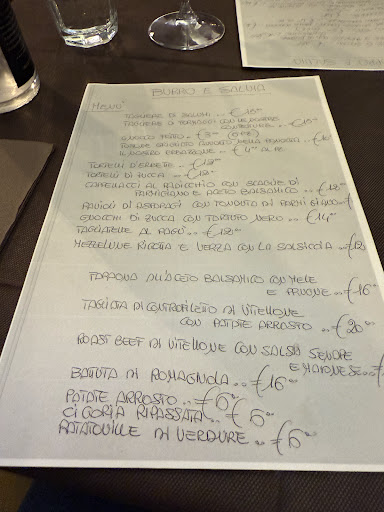 BURRO E SALVIA
MENÙ
TAGLIERE DI SALUMI .. €16
TAGLIERE DI FORMAGGI CON LE NOSTRE
CONFETTURE .. €15
GNOCCO FRITTO .. €3
IL NOSTRO ERBAZZONE .. €4
TORTELLI D'ERBETTE .. €12
TORTELLI DI ZUCCA .. €12
CAPPELLACCI AL RADICCHIO CON SCAGLIE DI
PARMIGIANO E ACETO BALSAMICO .. €12
RAVIOLI DI ASPARAGI CON FONDUTA DI
GNOCCHI DI ZUCCA CON TARTUFO NERO .. €14
TAGLIATELLE AL RAGÙ .. €12
MEZZELUNE RICOTTA E VERZA CON LA SALSICCIA .. €12
FARAONA ALL'ACETO BALSAMICO CON MELE
E PRUGNE .. €16
TAGLIATA DI CONTROFILETTO DI VITELLONE
CON PATATE ARROSTO .. €20
ROAST BEEF DI VITELLONE CON SALSA SENAPE
E MAIONESE .. €
BATTUTA DI ROMAGNOLA .. €16
PATATE ARROSTO .. €6
CICORIA RIPASSATA .. €6
RATATOUILLE DI VERDURE .. €6